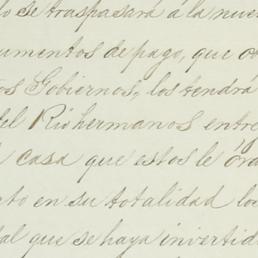 lo se traspasará á la nue
umentos de pago, que o
os Gobiernos, los tendrá
del Rio hermanos entre
casa que estos le ord
to en su totalidad lo
al que se haya invertid